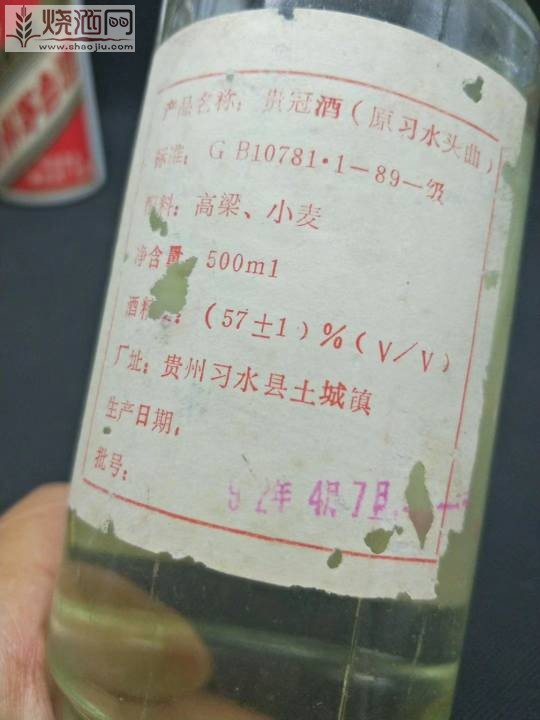 烧酒网
www.shaojiu.com
产品名称：贵冠酒（原习水头曲）
标准：GB10781·1—89一级
料：高粱、小麦
净含量 500ml
酒 ：(57±1)%(V/V)
厂址：贵州习水县土城镇
生产日期：
92年 4月 7日
批号：